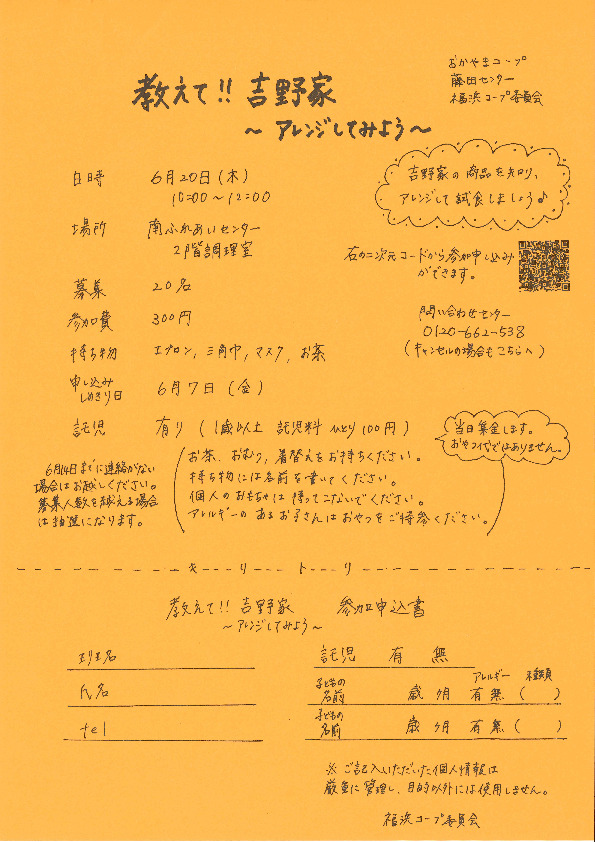 おかやまコープ
藤田センター
福浜コープ委員会
教えて!! 吉野家
～アレンジしてみよう～
日時 6月20日(木)
10:00～12:00
吉野家の商品を知り、
アレンジして試食しましょう♪
場所 南ふれあいセンター
2階調理室
右の二次元コードから参加申し込み
ができます。
募集 20名
参加費 300円
問い合わせセンター
0120-662-538
(キャンセルの場合もこちらへ)
持ち物 エプロン, 三角巾, マスク, お茶
申し込み
しめきり日 6月7日(金)
託児 有り (1歳以上 託児料 ひとり100円)
当日集金します。
おやつ代ではありません。
お茶、おむつ, 着替えをお持ちください。
持ち物には名前を書いてください。
個人のおもちゃは持ってこないでください。
アレルギーのあるお子さんはおやつをご持参ください。
6月14日までに連絡がない
場合はお越しください。
募集人数を越える場合
は抽選になります。
キーリートーリ
教えて!! 吉野家 参加申込書
～アレンジしてみよう～
班名
氏名
tel
託児 有 無
アレルギー 種類
子どもの
名前 歳 ヶ月 有 無 ( )
子どもの
名前 歳 ヶ月 有 無 ( )
※ご記入いただいた個人情報は
厳重に管理し、目的以外には使用しません。
福浜コープ委員会